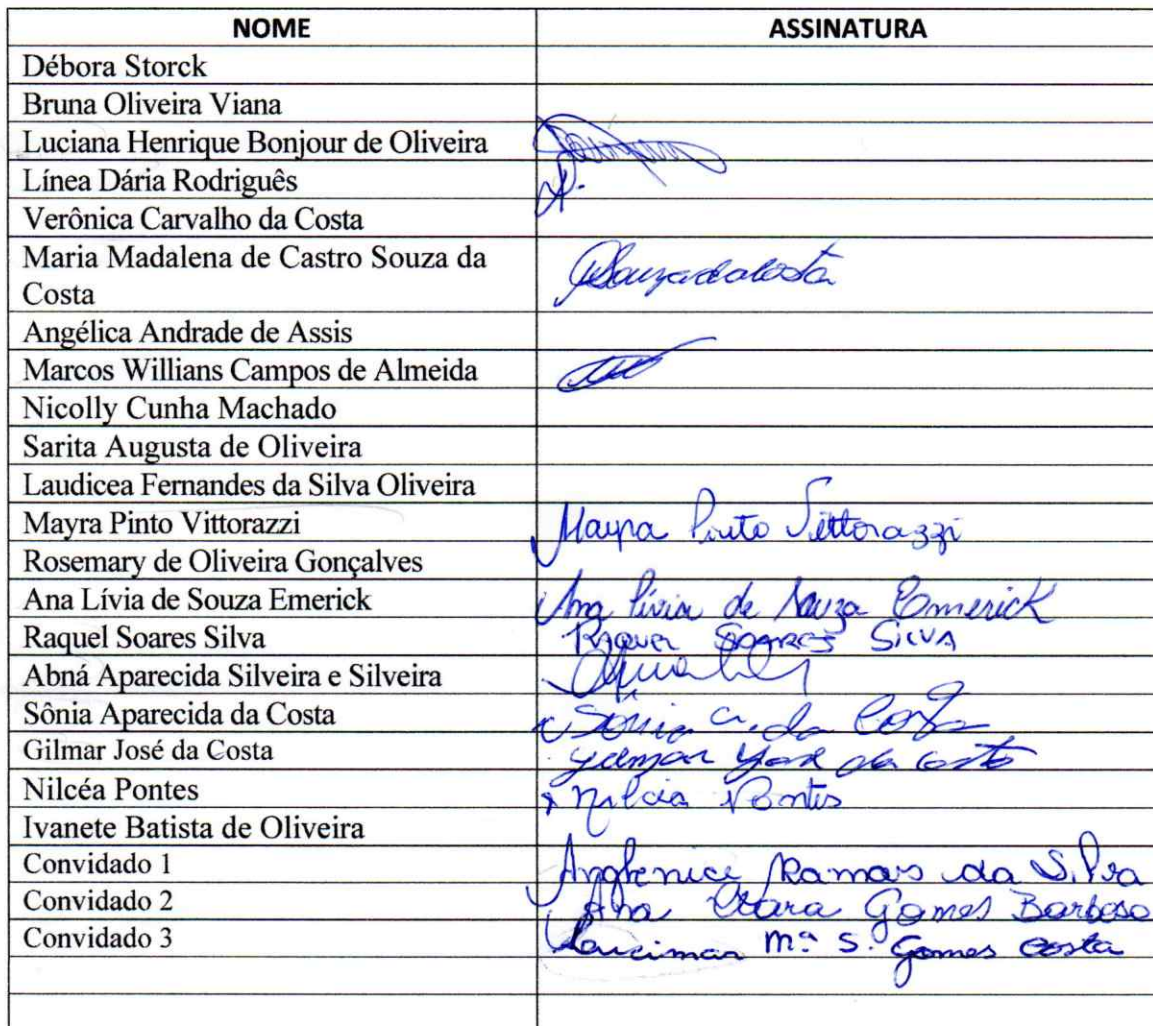 NOME ASSINATURA
Débora Storck
Bruna Oliveira Viana
Luciana Henrique Bonjour de Oliveira
Línea Dária Rodriguês
Verônica Carvalho da Costa
Maria Madalena de Castro Souza da
Costa Souzadacosta
Angélica Andrade de Assis
Marcos Willians Campos de Almeida
Nicolly Cunha Machado
Sarita Augusta de Oliveira
Laudicea Fernandes da Silva Oliveira
Mayra Pinto Vittorazzi Mayra Pinto Vittorazzi
Rosemary de Oliveira Gonçalves
Ana Lívia de Souza Emerick Ana Lívia de Souza Emerick
Raquel Soares Silva Raquel Soares Silva
Abná Aparecida Silveira e Silveira
Sônia Aparecida da Costa Sônia a. da Costa
Gilmar José da Costa Gilmar José da Costa
Nilcéa Pontes Nilcéa Pontes
Ivanete Batista de Oliveira
Convidado 1 Ramos da Silva
Convidado 2 Ana Clara Gomes Barbosa
Convidado 3 Mª S. Gomes Costa